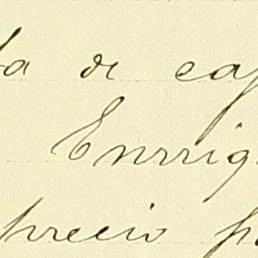 de ca
Enrriq
precio p